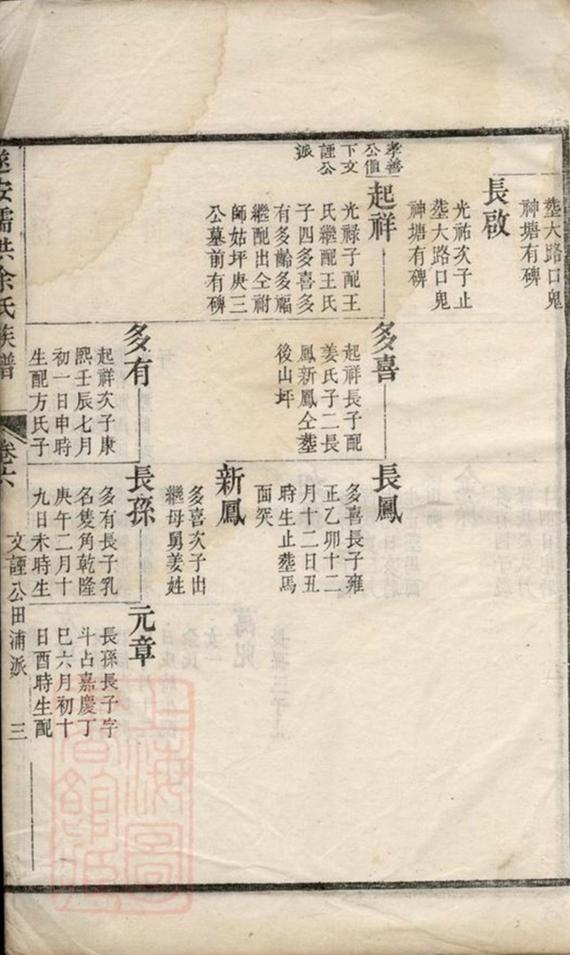 塟大路口鬼
神塘有碑
長啟
光祐次子止
塟大路口鬼
神塘有碑
孝善
公值
下文
諲公
派
起祥
光祿子配王
氏繼配王氏
子四多喜多
有多齡多福
繼配出仝祔
師姑坪庚三
公墓前有碑
多喜
起祥長子配
姜氏子二長
鳳新鳳仝塟
後山坪
多有
起祥次子康
熙壬辰七月
初一日申時
生配方氏子
長鳳
多喜長子雍
正乙卯十二
月十二日丑
時生止塟馬
面突
新鳳
多喜次子出
繼母舅姜姓
長孫
多有長子乳
名隻角乾隆
庚午二月十
九日未時生
元章
長孫長子字
斗占嘉慶丁
巳六月初十
日酉時生配
遂安儒洪余氏族譜
卷六
文諲公田浦派
三